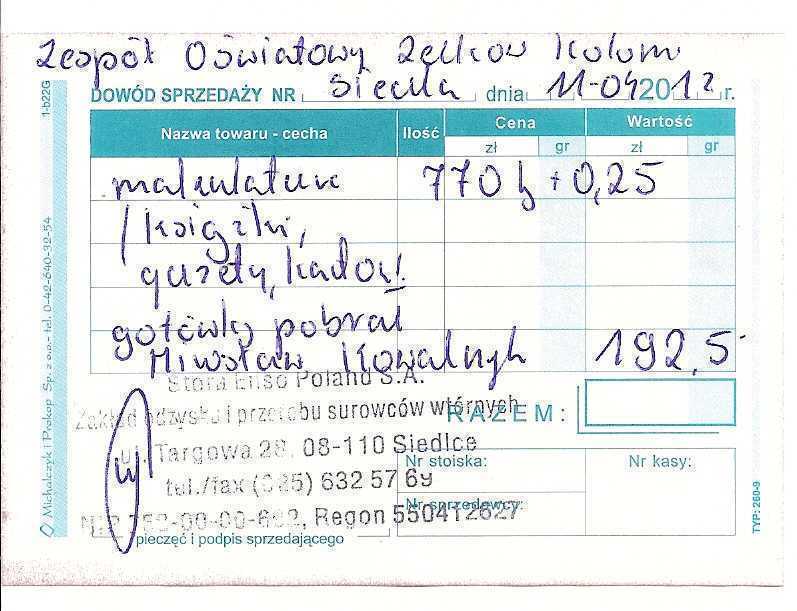 Zespół Oświatowy Żelków Kolonia
Siedlce
DOWÓD SPRZEDAŻY NR dnia 11-04 2012 r.
Nazwa towaru - cecha Ilość Cena Wartość
zł gr zł gr
makulatura 770 kg + 0,25
/ książki,
gazety, kadou!
gotówkę pobrał
Mirosław Kowalczyk 192,5
Stora Enso Poland S.A.
Zakład odzysku i przerobu surowców wtórnych
RAZEM:
ul. Targowa 28, 08-110 Siedlce
tel./fax (025) 632 57 69
Regon 550412627
Nr stoiska: Nr kasy:
Nr sprzedawcy:
pieczęć i podpis sprzedającego
1-b22G
Michalczyk i Prokop Sp. z o.o. - tel. 0-42-640-32-54
TYP: 260-9